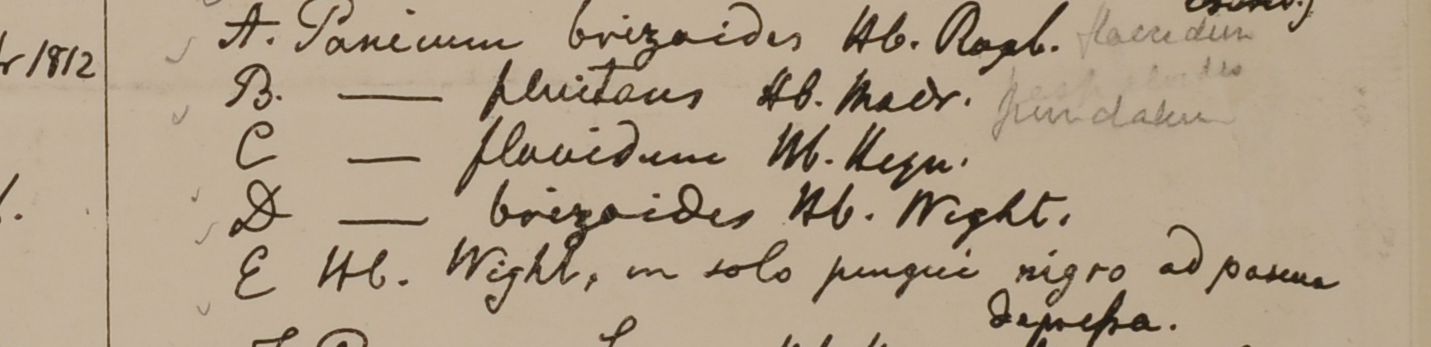 A. Panicum brizoides Hb. Roxb. flavidum
r 1812
B. — fluitans Hb. Madr.
C — flavidum Hb. Heyn.
D — brizoides Hb. Wight.
E Hb. Wight, in solo pingui nigro ad pascua
depressa.